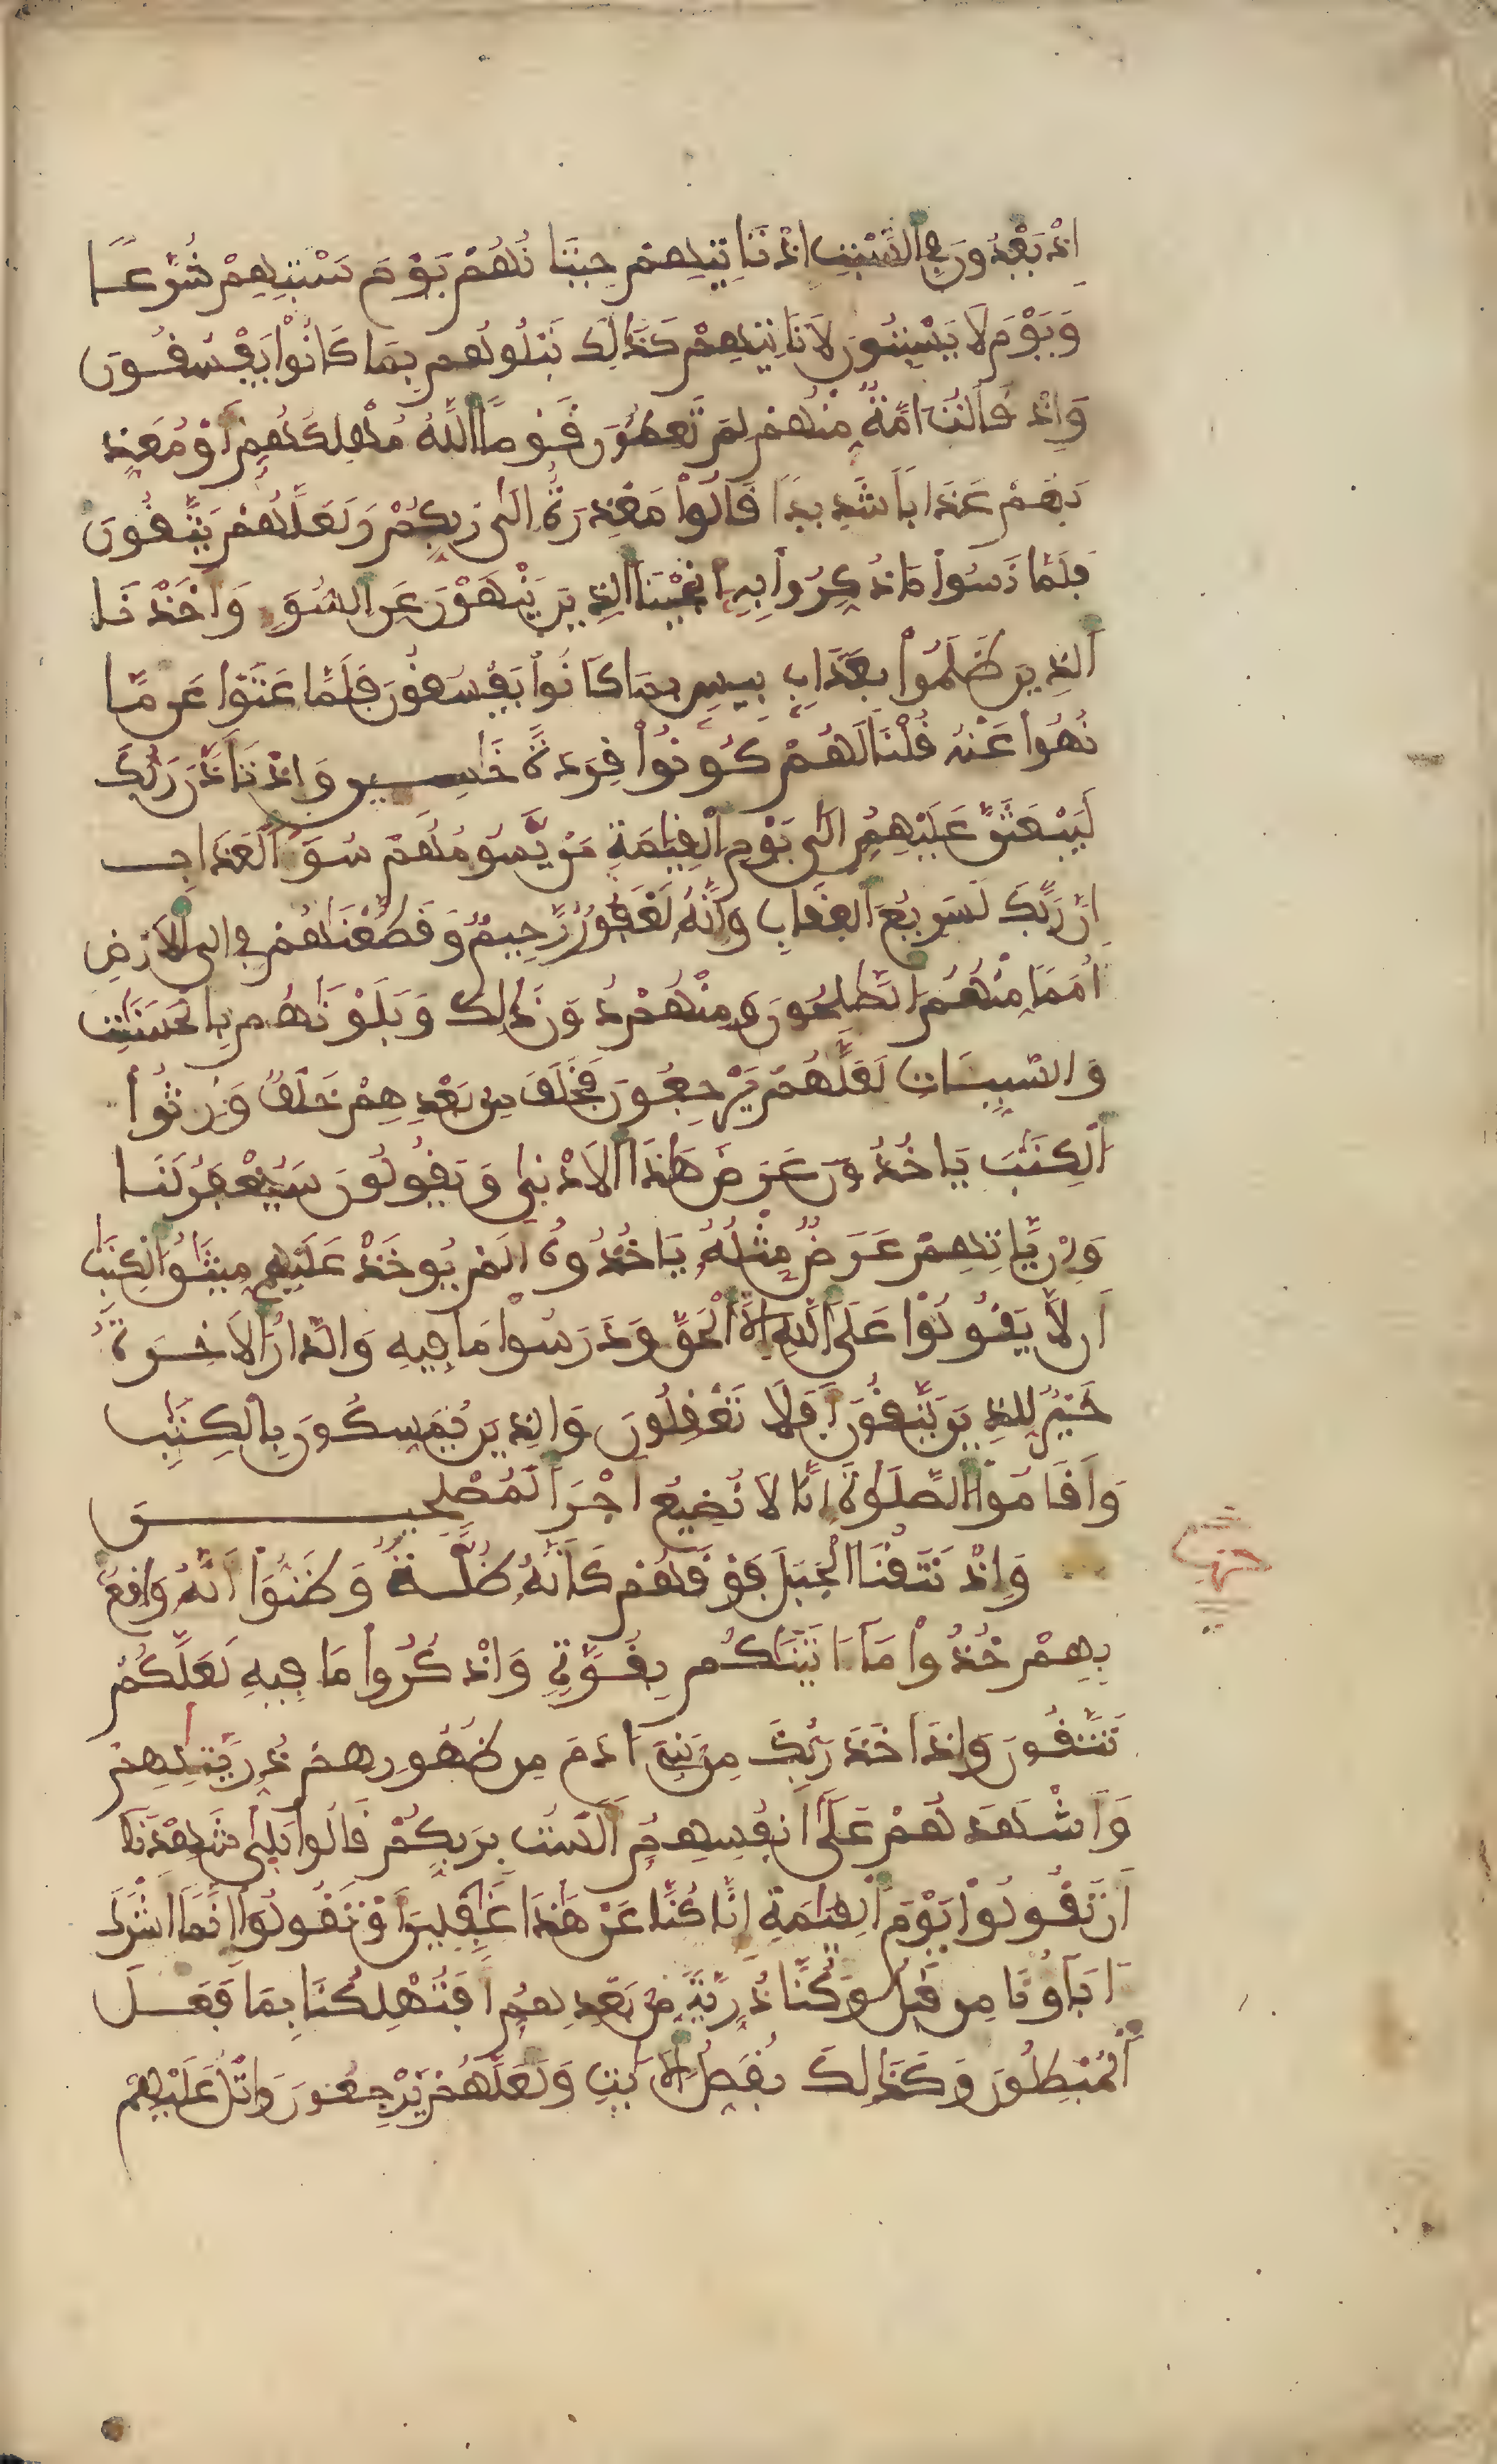 إِذْ يَعْدُونَ فِي السَّبْتِ إِذْ تَاتِيهِمْ حِيتَانُهُمْ يَوْمَ سَبْتِهِمْ شُرَّعًا
وَيَوْمَ لَا يَسْبِتُونَ لَا تَاتِيهِمْ كَذَلِكَ نَبْلُوهُم بِمَا كَانُوا يَفْسُقُونَ
وَإِذْ قَالَتُ امَّةٌ مِّنْهُمْ لِمَ تَعِظُونَ قَوْمًا اللَّهُ مُهْلِكُهُمْ أَوْ مُعَذِّ
بُهُمْ عَذَابًا شَدِيدًا قَالُوا مَعْذِرَةٌ إِلَى رَبِّكُمْ وَلَعَلَّهُمْ يَتَّقُونَ
فَلَمَّا نَسُوا مَا ذُكِّرُوا بِهِ أَنجَيْنَا الَّذِينَ يَنْهَوْنَ عَنِ السُّوءِ وَأَخَذْنَا
الَّذِينَ ظَلَمُوا بِعَذَابٍ بِيسٍ بِمَا كَانُوا يَفْسُقُونَ فَلَمَّا عَتَوْا عَن مَّا
نُهُوا عَنْهُ قُلْنَا لَهُمْ كُونُوا قِرَدَةً خَاسِينَ وَإِذْ تَأَذَّنَ رَبُّكَ
لَيَبْعَثَنَّ عَلَيْهِمُ إِلَى يَوْمِ الْقِيَمَةِ مَنْ يَّسُومُهُمْ سُوءَ الْعَذَابِ
إِنَّ رَبَّكَ لَسَرِيعُ الْعِقَابِ وَإِنَّهُ لَغَفُورٌ رَّحِيمٌ وَقَطَّعْنَاهُمْ فِي الَارْضِ
أُمَمًا مِّنْهُمُ الصَّلِحُونَ وَمِنْهُمْ دُونَ ذَلِكَ وَبَلَوْنَاهُم بِالْحَسَنَاتِ
وَالسَّيِّئَاتِ لَعَلَّهُمْ يَرْجِعُونَ فَخَلَفَ مِن بَعْدِهِمْ خَلْفٌ وَرِثُوا
الْكِتَبَ يَاخُذُونَ عَرَضَ هَذَا الَادْنَى وَيَقُولُونَ سَيُغْفَرُ لَنَا
وَإِنْ يَّاتِهِمْ عَرَضٌ مِّثْلُهُ يَاخُذُوهُ أَلَمْ يُوخَذْ عَلَيْهِم مِّيثَقُ الْكِتَبِ
أَن لَّا يَقُولُوا عَلَى اللَّهِ إِلَّا الْحَقَّ وَدَرَسُوا مَا فِيهِ وَالدَّارُ الَاخِرَةُ
خَيْرٌ لِّلَّذِينَ يَتَّقُونَ أَفَلَا تَعْقِلُونَ وَالَّذِينَ يُمَسِّكُونَ بِالْكِتَبِ
وَأَقَامُوا الصَّلَوةَ إِنَّا لَا نُضِيعُ أَجْرَ الْمُصْلِحِينَ
وَإِذْ نَتَقْنَا الْجَبَلَ فَوْقَهُمْ كَأَنَّهُ ظُلَّةٌ وَظَنُّوا أَنَّهُ وَاقِعٌ
بِهِمْ خُذُوا مَا ءَاتَيْنَاكُم بِقُوَّةٍ وَاذْكُرُوا مَا فِيهِ لَعَلَّكُمْ
تَتَّقُونَ وَإِذَ اخَذَ رَبُّكَ مِن بَنِي ءَادَمَ مِن ظُهُورِهِمْ ذُرِّيَّتِهِمْ
وَأَشْهَدَهُمْ عَلَى أَنفُسِهِمُ أَلَسْتُ بِرَبِّكُمْ قَالُوا بَلَى شَهِدْنَا
أَن تَقُولُوا يَوْمَ الْقِيَمَةِ إِنَّا كُنَّا عَنْ هَذَا غَفِلِينَ أَوْ تَقُولُوا إِنَّمَا أَشْرَكَ
ءَابَاؤُنَا مِن قَبْلُ وَكُنَّا ذُرِّيَّةً مِّن بَعْدِهِمُ أَفَتُهْلِكُنَا بِمَا فَعَلَ
الْمُبْطِلُونَ وَكَذَلِكَ نُفَصِّلُ الَايَتِ وَلَعَلَّهُمْ يَرْجِعُونَ وَاتْلُ عَلَيْهِمْ
حزب